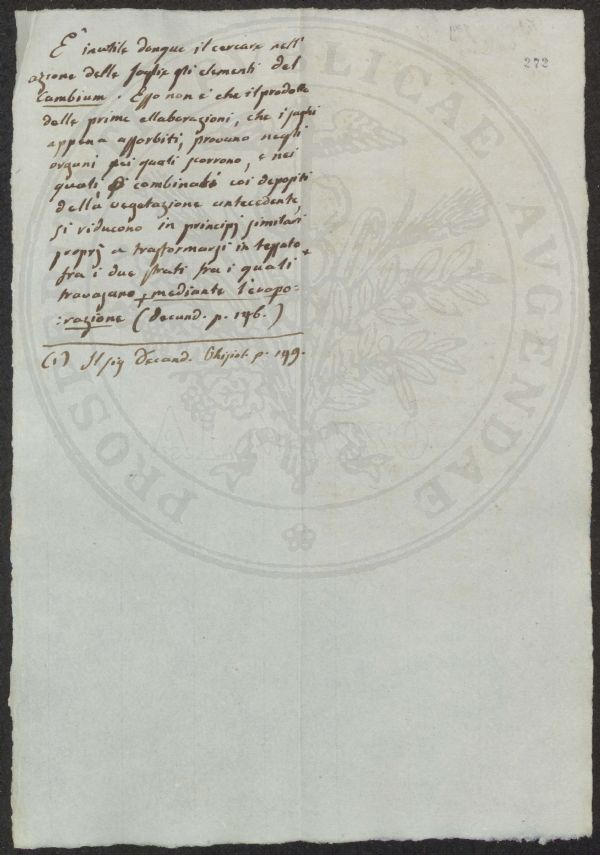 272
E' inutile donque il cercare nell'
azione delle foglie gli elementi del
Cambium. Esso non è che il prodotto
delle prime ellaborazioni, che i sughi
appena assorbiti, provano negli
organi pei quali scorrono, e nei
quali combinati coi depositi
della vegetazione antecedente,
si riducono in principj similari
proprj a trasformarsi in tessuto
fra i due strati fra i quali +
travasano, mediante l'evapo-
:razione (Decand. p. 146.)
(1) Il sig Decand. p. 149.
PROSPERITATI PUBLICAE AUGENDAE